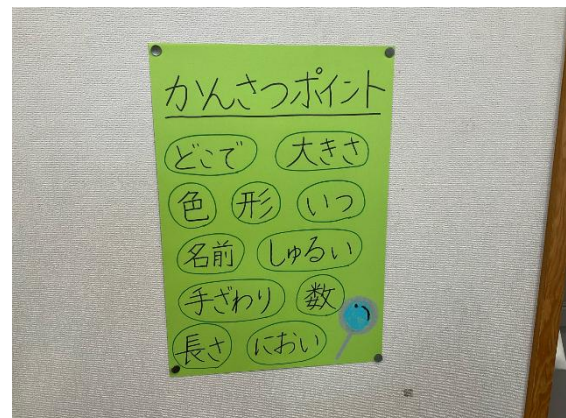 かんさつポイント
どこで 大きさ
色 形 いつ
名前 しゅるい
手ざわり 数
長さ におい